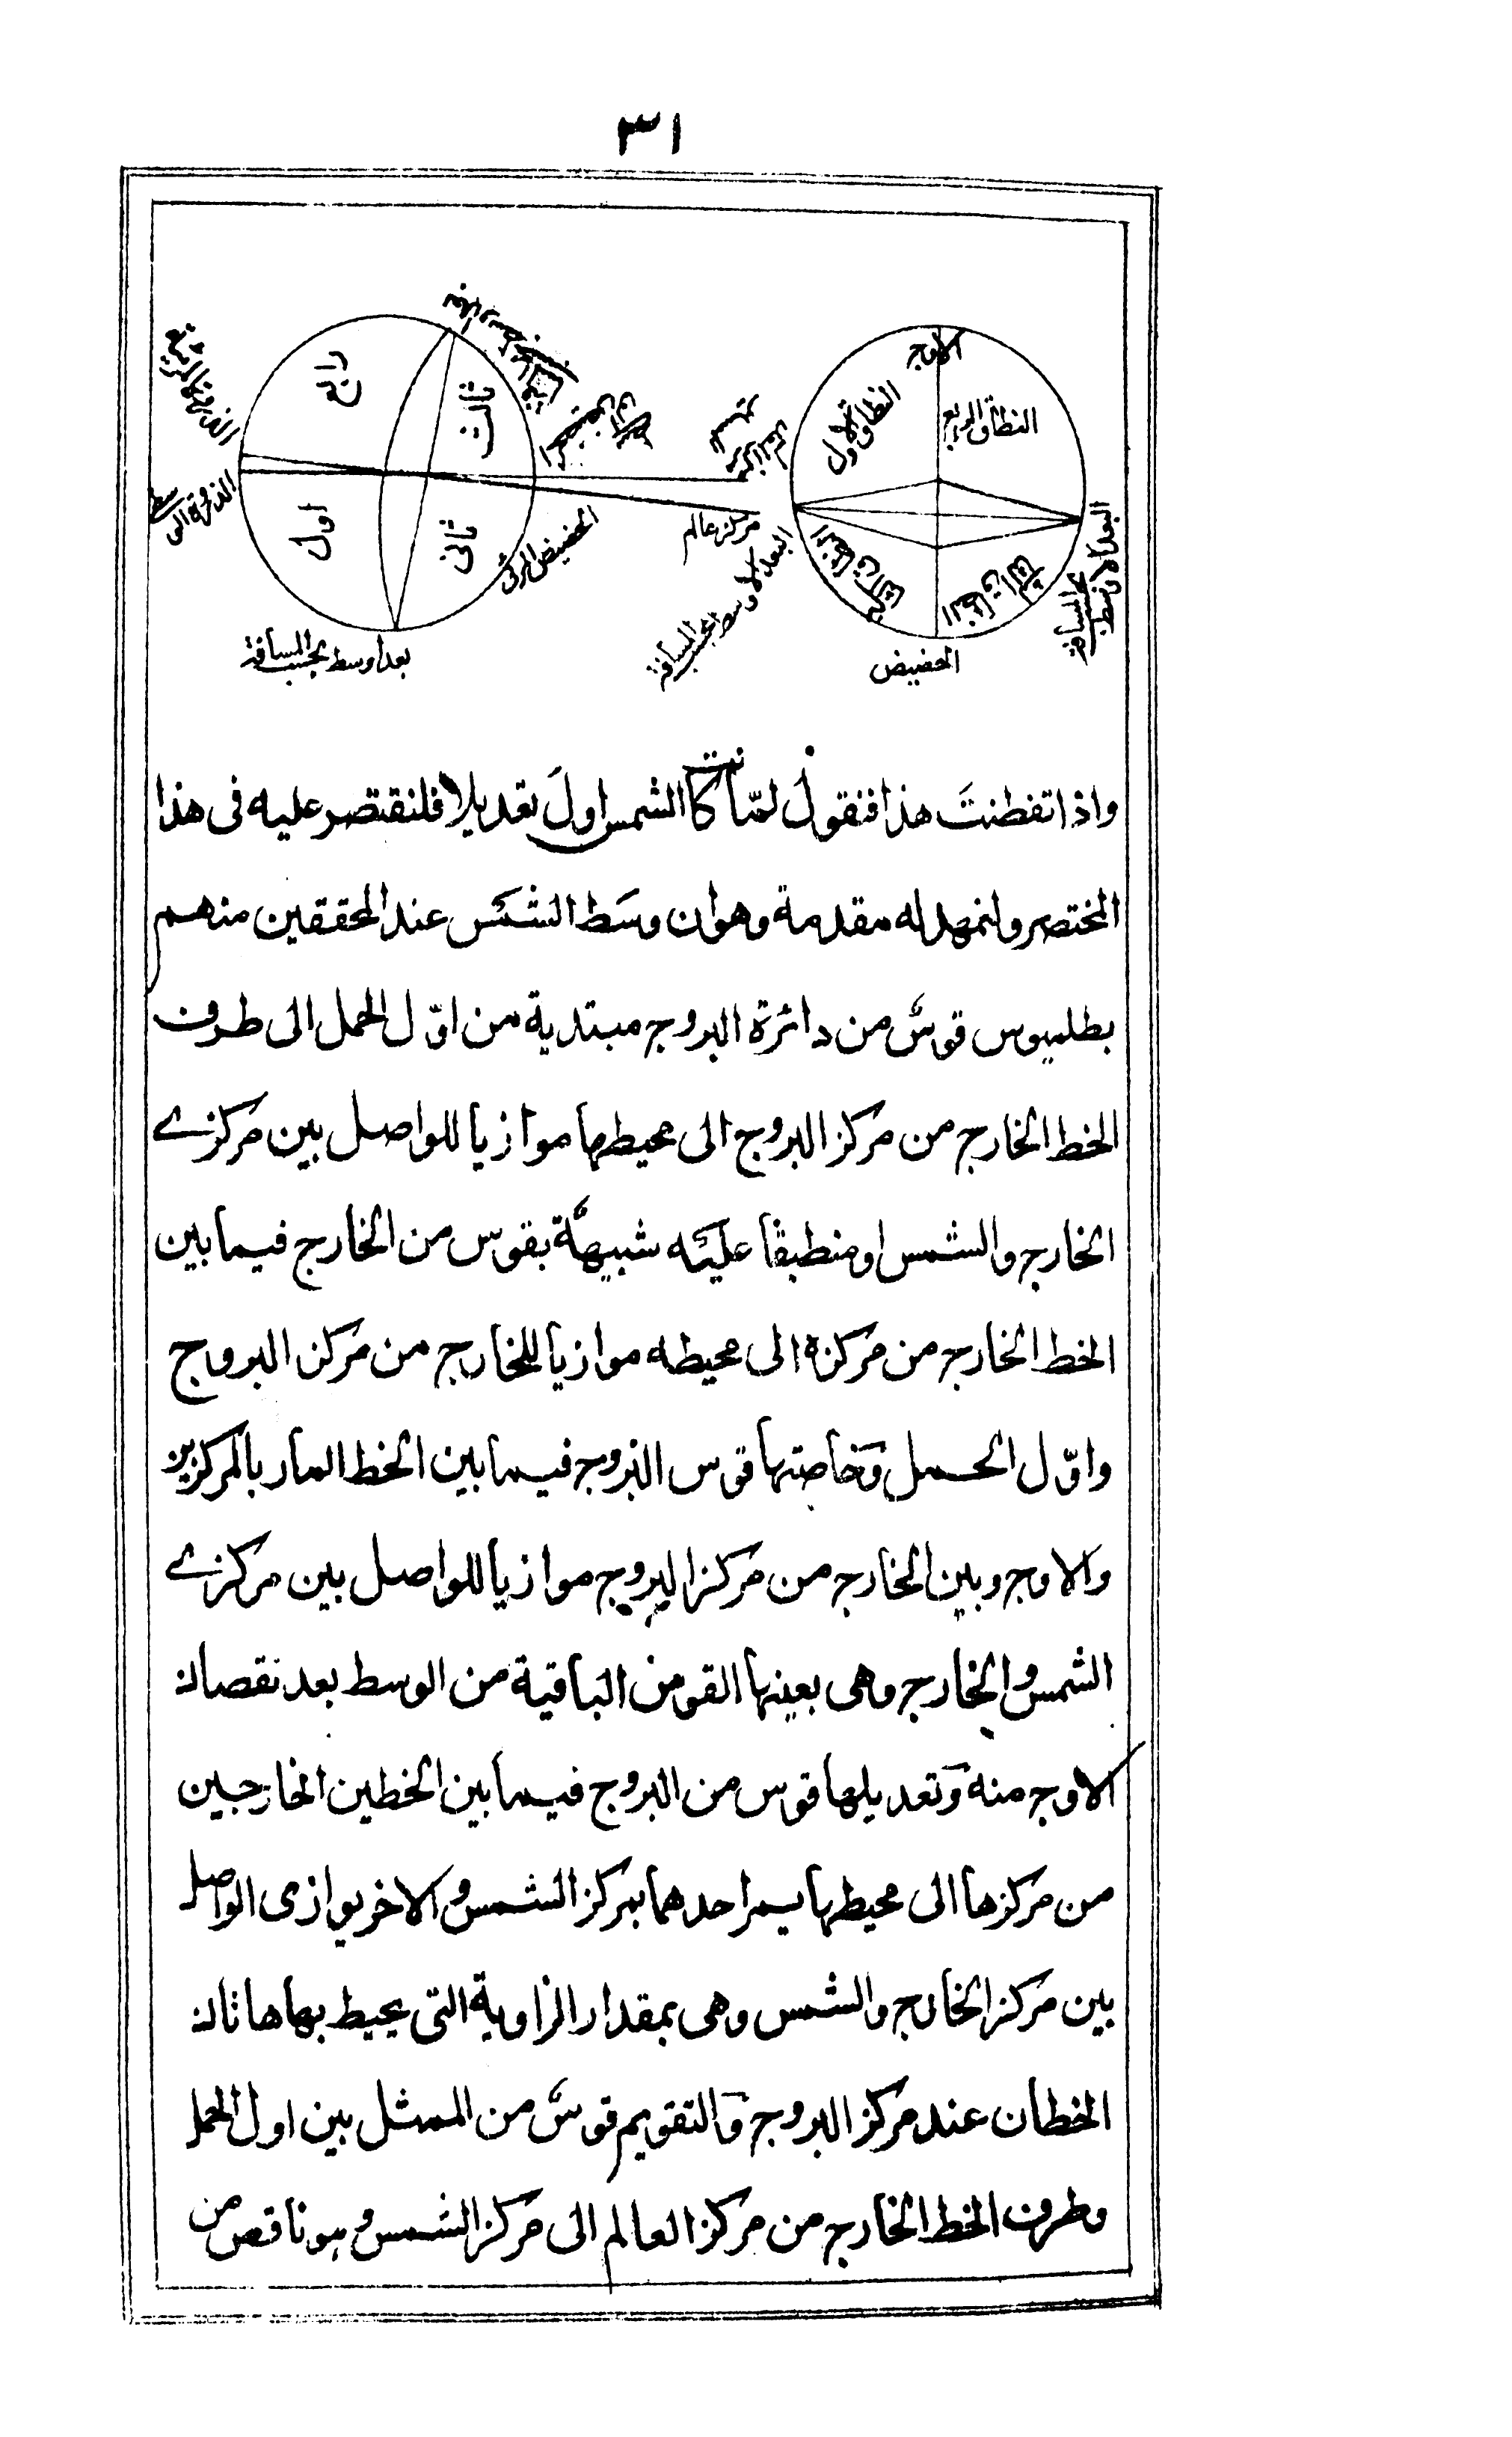 ٣١
الاوج
النطاق الرابع
النطاق الاول
النطاق الثانى
النطاق الثالث
البعد الاوسط بحسب المسافة
البعد الاوسط بحسب المسافة
الحضيض
مركز عالم
رابع
ثالث
اول
ثانى
الحضيض المرئى
بعد اوسط بحسب المسافة
واذا تفطنتَ هذا فنقول لمّا كانت الشمس اولَ تعديلا فلنقتصر عليه فى هذا
المختصر ولنمهد له مقدمة وهو ان وسَط الشمَس عند المحققين منهم
بطلميوس قوسٌ من دائرة البروج مبتدية من اوّل الحمل الى طرف
الخط الخارج من مركز البروج الى محيطها موازيا للواصل بين مركزے
الخارج والشمس او منطبقًا عليَه شبيهةٌ بقوس من الخارج فيما بين
الخط الخارج من مركزه الى محيطه موازيا للخارج من مركز البروج
واوّل الحمل وَخاصتها قوس البروج فيما بين الخط المار بالمركزين
والاوج وبين الخارج من مركز البروج موازيا للواصل بين مركزے
الشمس والخارج وهى بعينها القوس الباقية من الوسط بعد نقصان
الاوج منه وَتعديلها قوس من البروج فيما بين الخطين الخارجين
من مركزها الى محيطها يمر احدهما بمركز الشمس والاخر يوازى الواصل
بين مركز الخارج والشمس وهى بمقدار الزاوية التى يحيط بها هاتان
الخطان عند مركز البروج وَالتقويم قوسٌ من الممثل بين اول الحمل
وطرف الخط الخارج من مركز العالم الى مركز الشمس وهو ناقص من